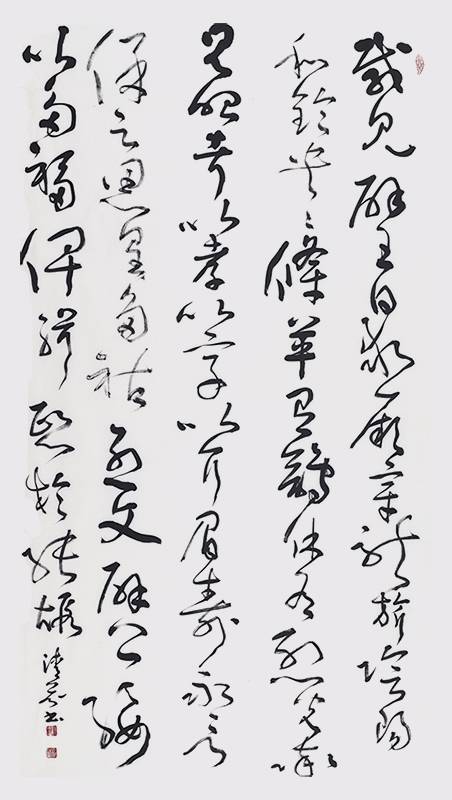 載見辟王曰求厥章龍旂陽陽
和鈴央々鞗革有鶬休有烈光率
見昭考以孝以享以介眉壽永言
保之思皇多祜烈文辟公綏
以多福俾緝熙於純嘏